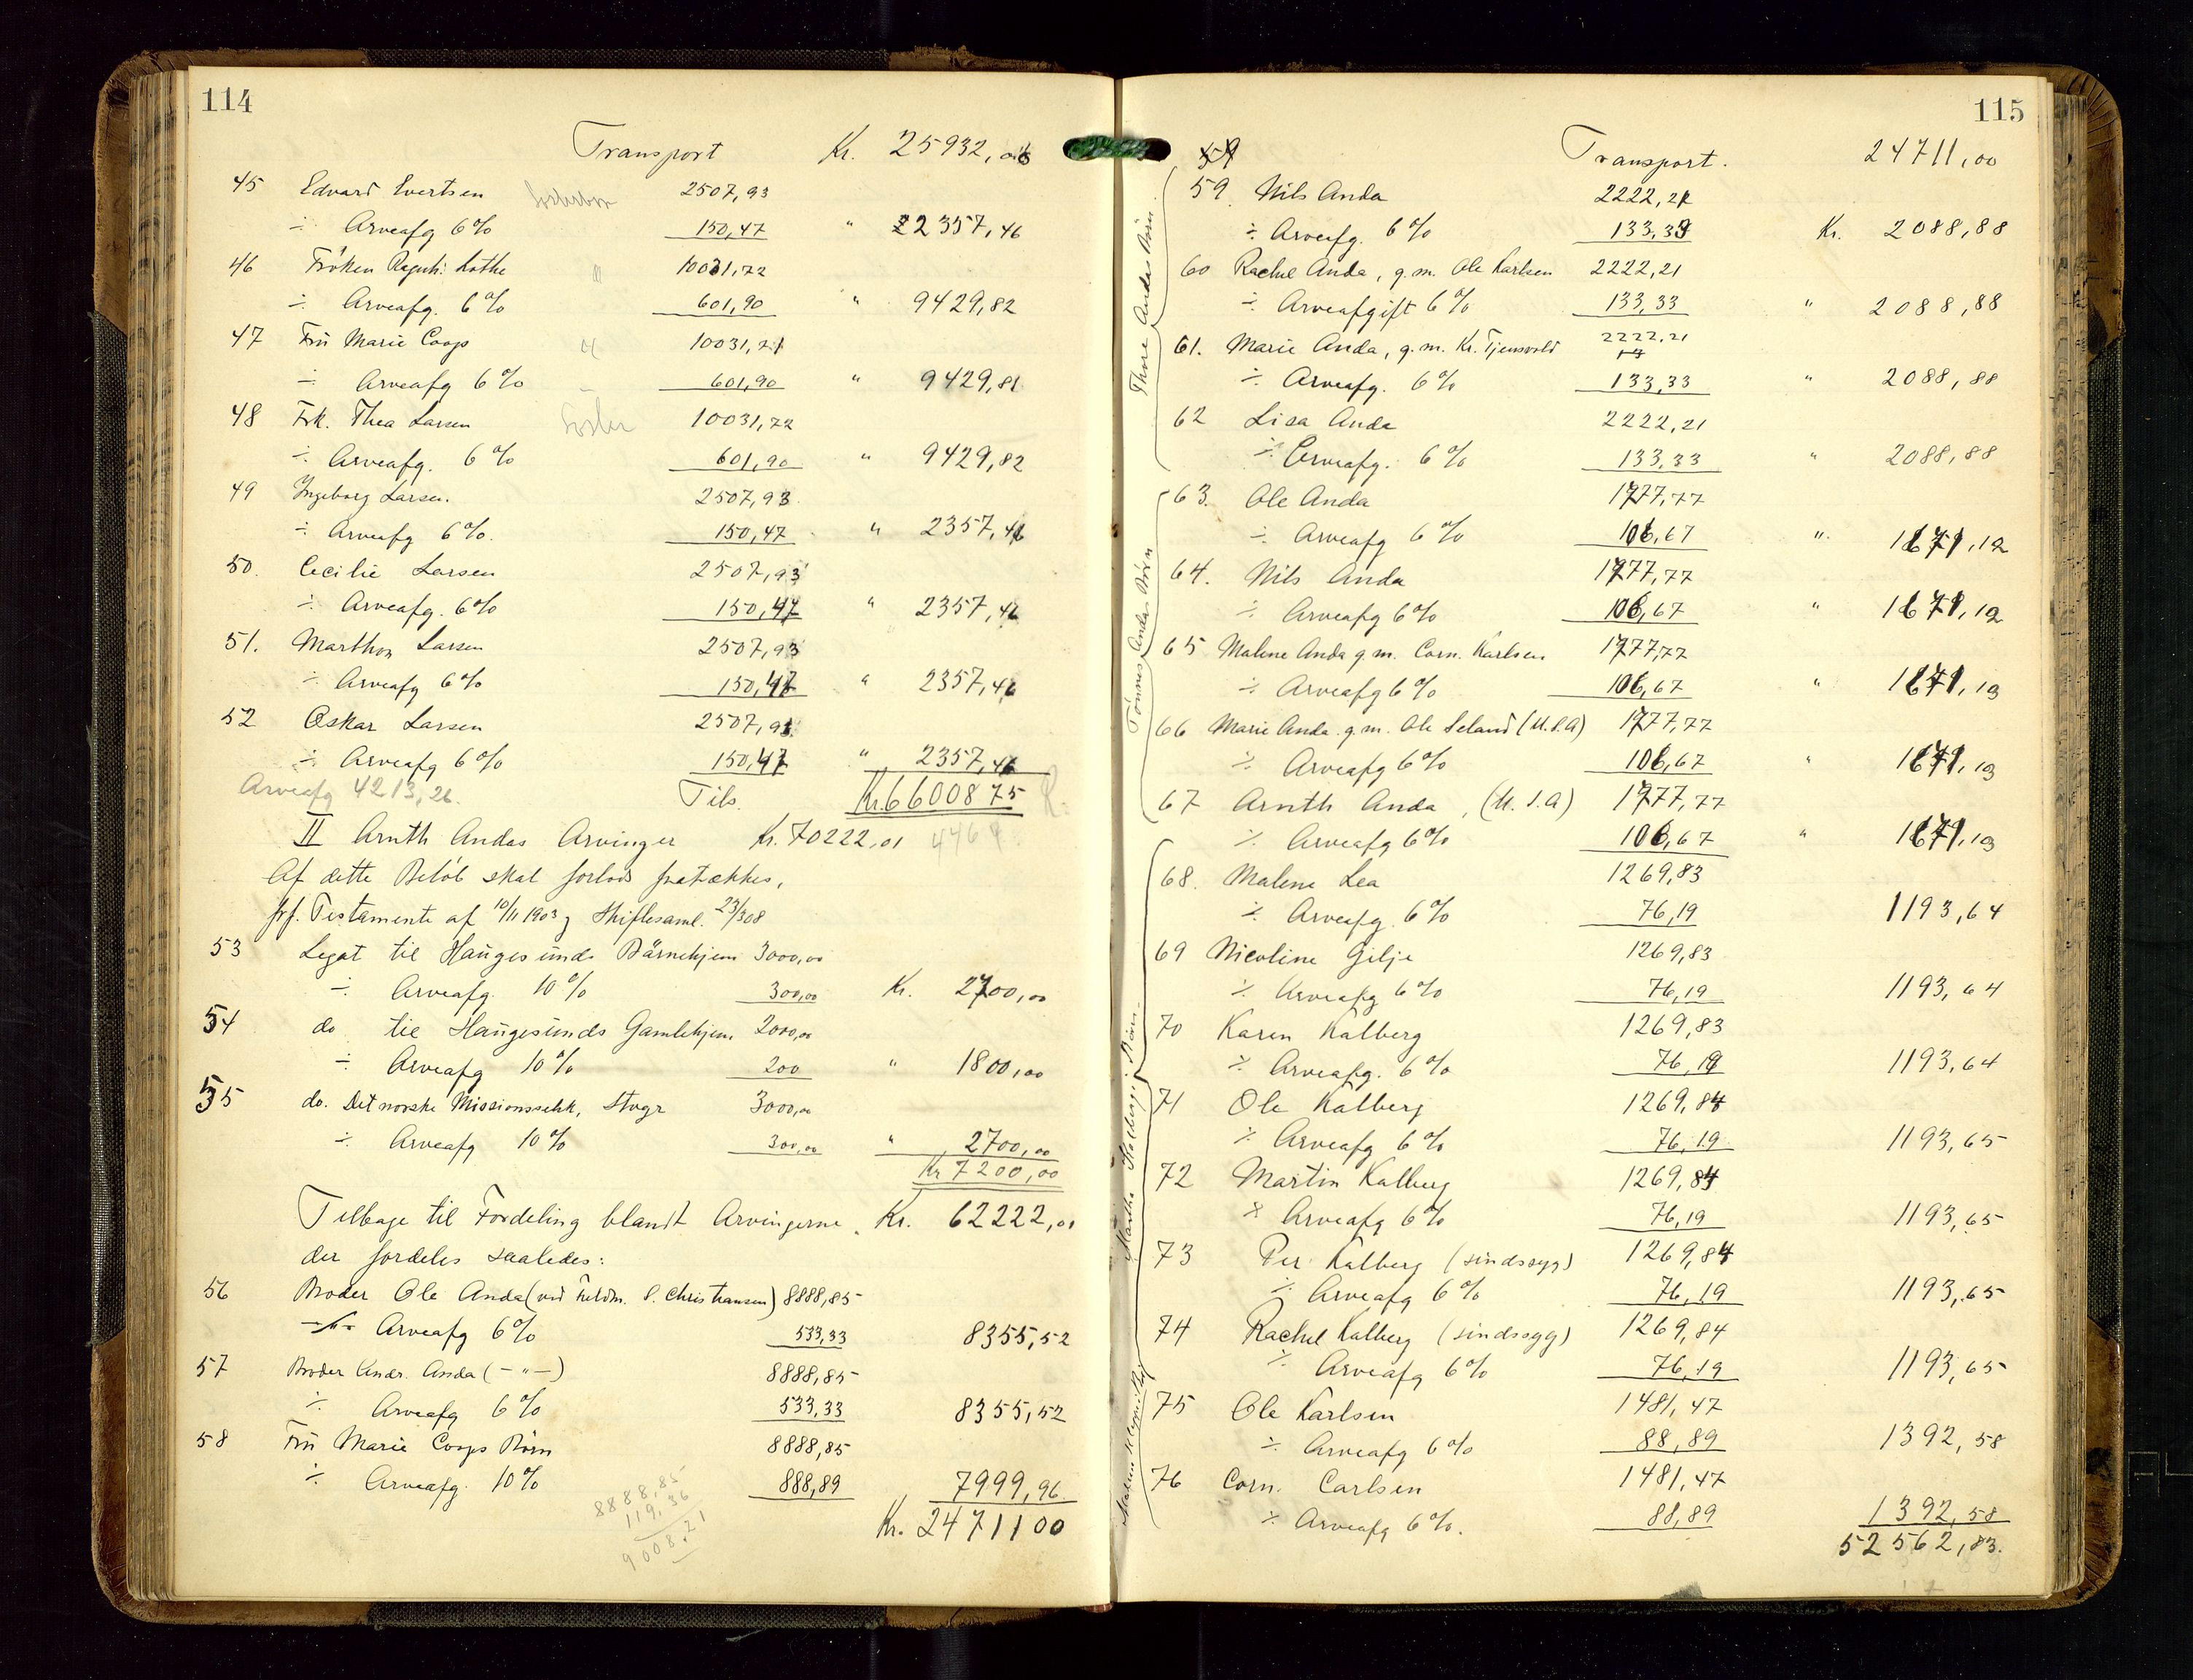 114
Transport Kr. 25932,06
45 Edvard Evertsen 2507,93
÷ Arveafg 6% 150,47 " 2357,46
46 Fröken Ragnh. Lothe 10031,72
÷ Arveafg. 6% 601,90 " 9429,82
47 Frü Marie Coops 10031,71
÷ Arveafg 6% 601,90 " 9429,81
48 Frk. Thea Larsen Søster 10031,72
÷ Arveafg. 6% 601,90 " 9429,82
49 Ingeborg Larsen. 2507,93
÷ Arveafg 6%. 150,47 " 2357,46
50. Cecilie Larsen 2507,93
÷ Arveafg. 6% 150,47 " 2357,46
51. Marthon Larsen 2507,93
÷ Arveafg 6% 150,47 " 2357,46
52 Oskar Larsen 2507,93
÷ Arveafg 6% 150,47 " 2357,46
Arveafg 4213,26. Tils. Kr 66008 75
II Arnth Andas Arvinger Kr. 70222,01
Af dette Beløb skal forlods fratrækkes,
jfr. Testamente af 10/11 1903 og Skiftesaml. 23/3 08
53 Legat til Haugesunds Bärnehjem 3000,00
÷ Arveafg. 10% 300,00 Kr. 2700,00
54 do til Haugesunds Gamlehjem 2000,00
÷ Arveafg 10% 200 " 1800,00
55 do. Det norske Missionsselsk, Stvgr 3000,00
÷ Arveafg 10% 300,00 " 2700,00
Kr 7200,00
Tilbage til Fordeling blandt Arvingerne. Kr. 62222,01
der fordeles saaledes:
56 Broder Ole Anda (ved Fuldm. S. Christiansen) 8888,85
÷ Arveafg 6% 533,33 8355,52
57 Broder Andr. Anda (- " -) 8888,85
÷ Arveafg 6% 533,33 8355,52
58 Frü Marie Coops Börn 8888,85
÷ Arveafg. 10% 888,89 7999,96
Kr. 24711 00
8888,85
119,36
9008,21
115
59 Transport. 24711,00
Thore Andas Börn
59 Nils Anda 2222,21
÷ Arveafg. 6% 133,33 Kr. 2088,88
60 Rachel Anda, g.m. Ole Karlsen 2222,21
÷ Arveafgift 6% 133,33 " 2088,88
61. Marie Anda, g.m. Kr. Tjensvold 2222,21
÷ Arveafg. 6% 133,33 " 2088,88
62 Lisa Anda 2222,21
÷ Arveafg. 6% 133,33 " 2088,88
Tönnes Andas Börn
63. Ole Anda 1777,77
÷ Arveafg 6% 106,67 " 1671,12
64. Nils Anda 1777,77
÷ Arveafg 6% 106,67 " 1671,12
65 Malene Anda g.m. Corn. Karlsen 1777,77
÷ Arveafg 6% 106,67 " 1671,13
66 Marie Anda g.m. Ole Seland (U.S.A) 1777,77
÷ Arveafg 6% 106,67 " 1671,13
67 Arnth Anda, (U.S.A) 1777,77
÷ Arveafg 6% 106,67 " 1671,13
68. Malene Lea 1269,83
÷ Arveafg. 6% 76,19 1193,64
69 Nicoline Gilje 1269,83
÷ Arveafg 6% 76,19 1193,64
70 Karen Kalberg 1269,83
÷ Arveafg. 6% 76,19 1193,64
71 Ole Kalberg 1269,84
÷ Arveafg 6% 76,19 1193,65
72 Martin Kalberg 1269,84
÷ Arveafg 6% 76,19 1193,65
73 Per Kalberg (sindssyg) 1269,84
÷ Arveafg 6% 76,19 1193,65
74 Rachel Kalberg (sindssyg) 1269,84
÷ Arveafg 6% 76,19 1193,65
75 Ole Karlsen 1481,47
÷ Arveafg 6% 88,89 1392,58
76 Corn. Carlsen 1481,47
÷ Arveafg 6%. 88,89 1392,58
52562,83.